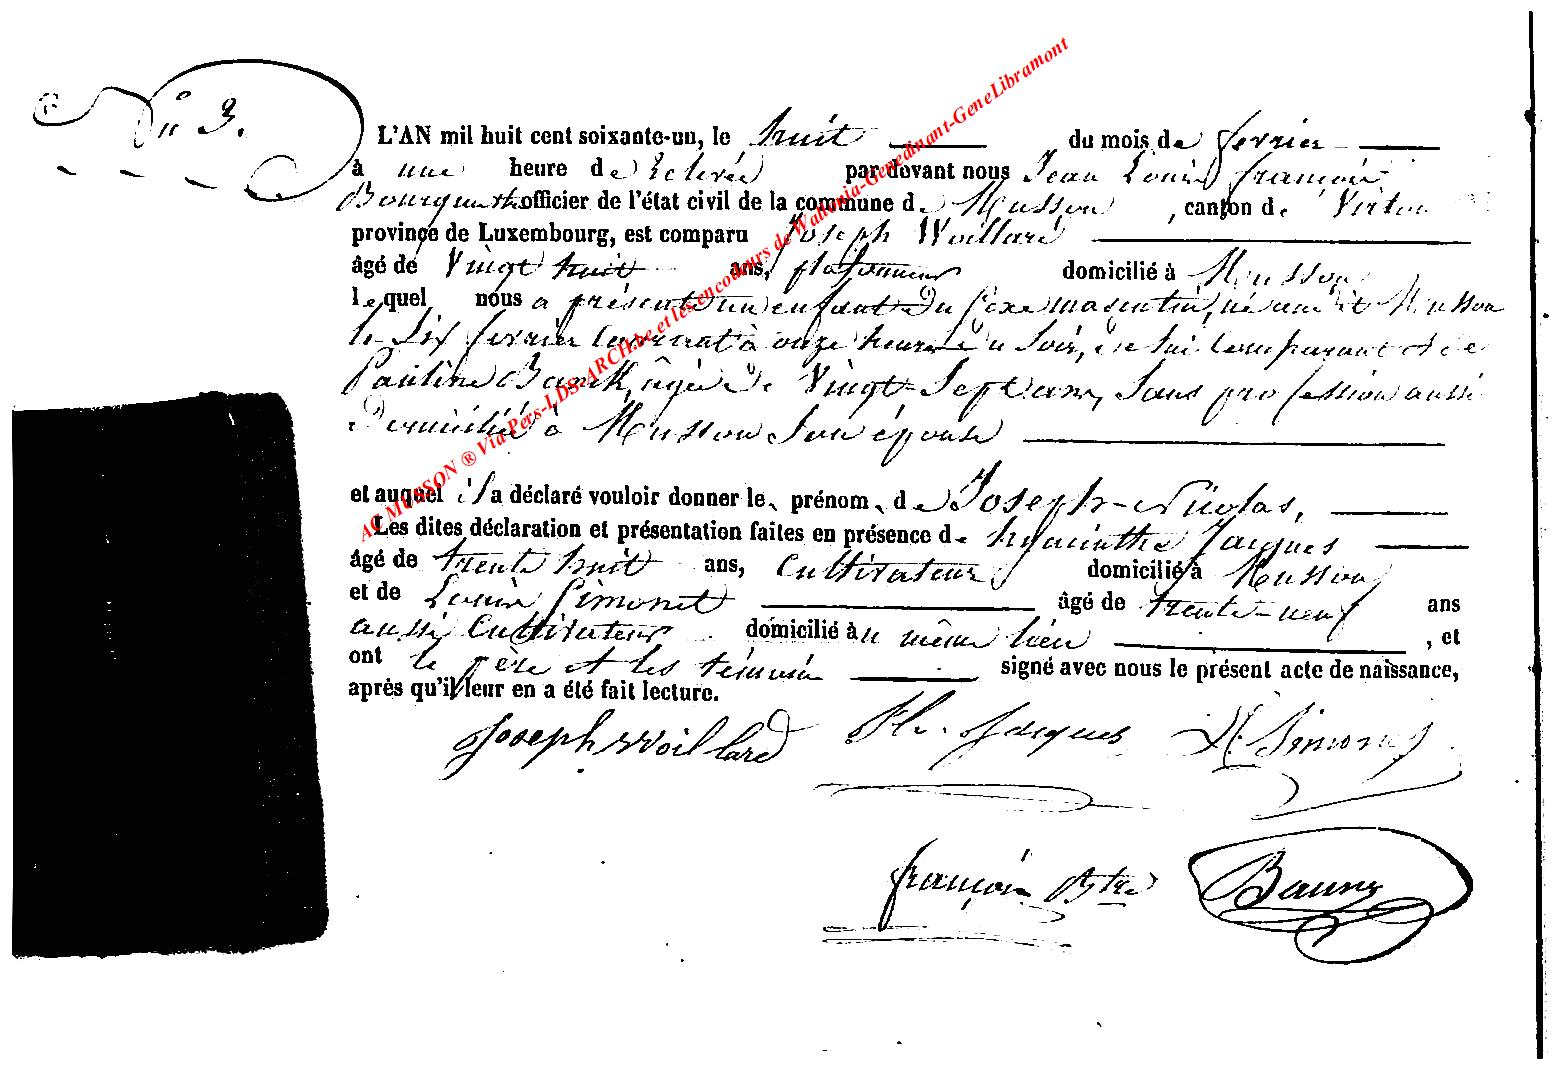 N° 3.
L'AN mil huit cent soixante-un, le huit du mois de fevrier
à une heure de relevée par devant nous Jean Louis françois
officier de l'état civil de la commune de Musson, canton de Virton
province de Luxembourg, est comparu Joseph Woillard
âgé de Vingt huit ans, plafonneur domicilié à Musson
lequel nous a présenté un enfant du sexe masculin, né audit Musson
le Six fevrier courant à onze heures du Soir, de lui Comparant et de
Pauline âgée de Vingt-Sept ans, Sans profession aussi
domiciliée à Musson Son épouse
et auquel il a déclaré vouloir donner les prénoms de Joseph-Nicolas,
Les dites déclaration et présentation faites en présence de hyacinthe Jacques
âgé de trente huit ans, Cultivateur domicilié à Musson
et de Louis Simonet âgé de trente-neuf ans
aussi Cultivateur domicilié au même lieu, et
ont le père et les témoins signé avec nous le présent acte de naissance,
après qu'il leur en a été fait lecture.
Joseph Woillard H. Jacques L. Simonet
françois
AC MUSSON ® Via Pers-LDS-ARCH.be et les encodeurs de Wallonia-Genedinant-GeneLibramont